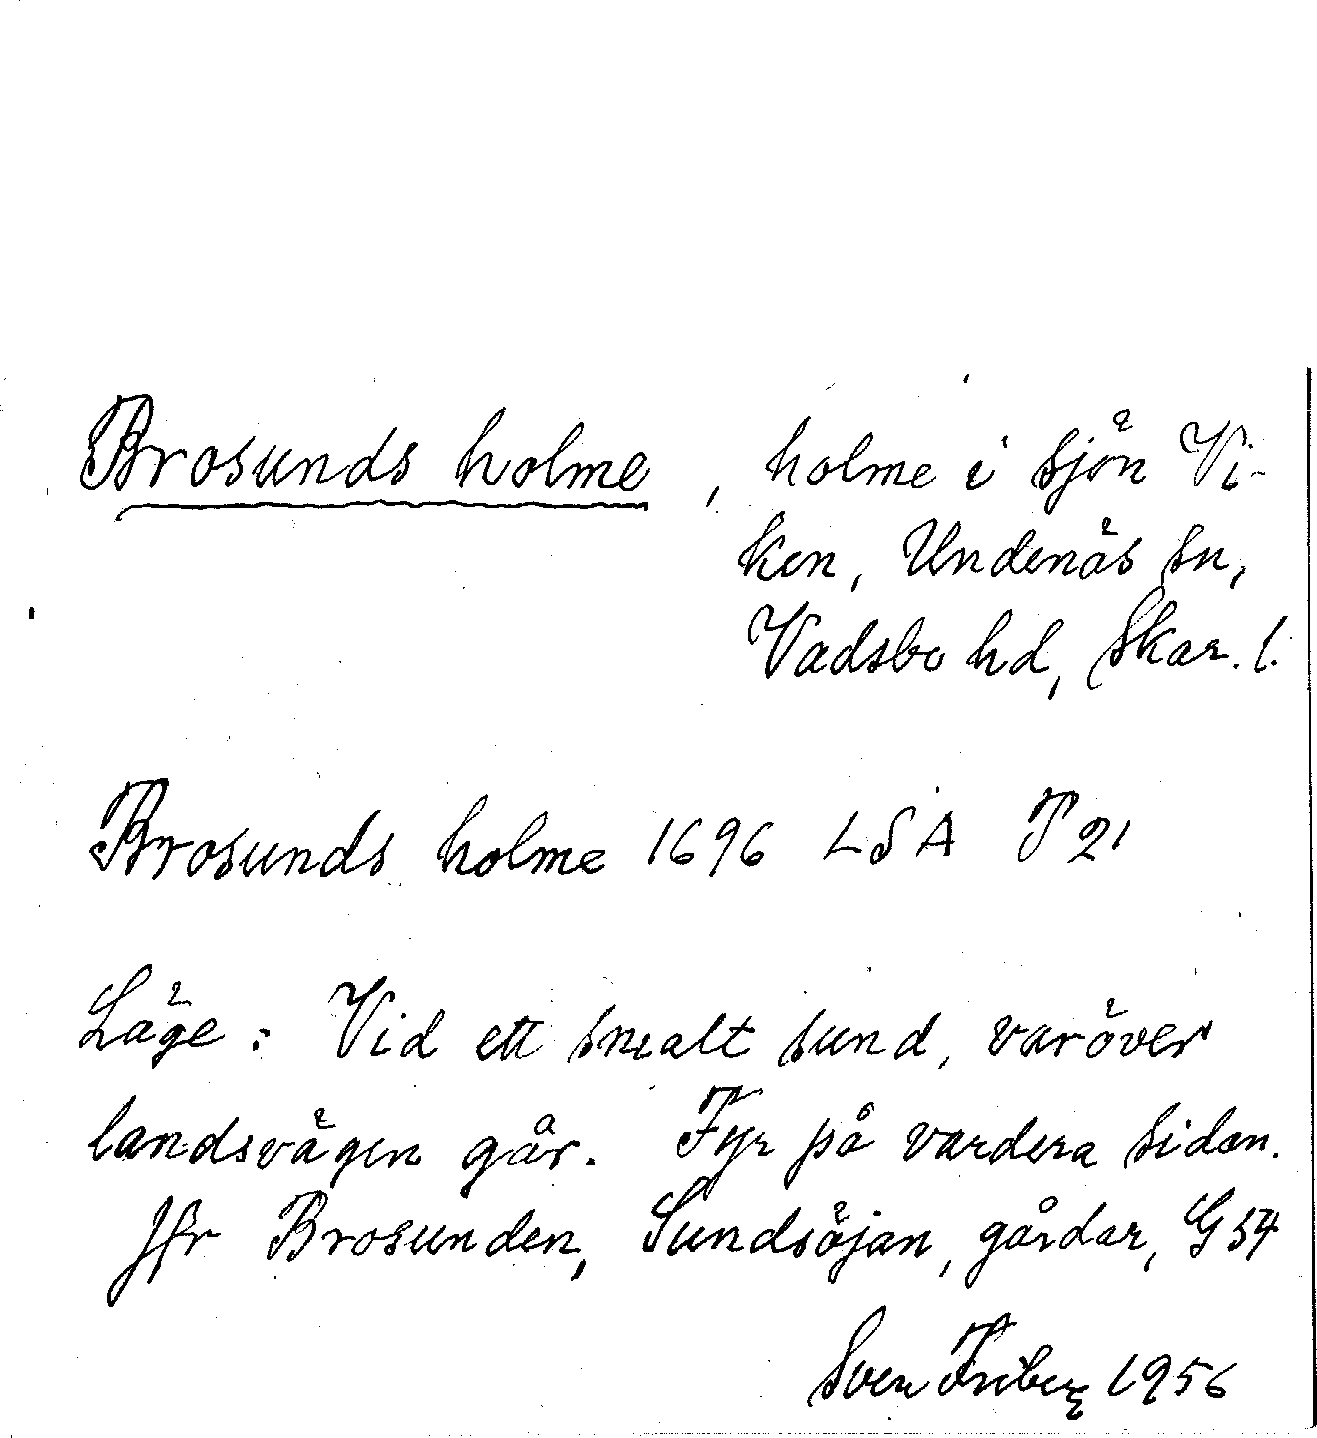 Brosunds holme, holme i sjön Vi-
ken, Undenäs sn,
Vadsbo hd, Skar. l.
Brosunds holme 1696 LSA P 21
Läge: Vid ett smalt sund, varöver
landsvägen går. Fyr på vardera sidan.
Jfr Brosunden, Sundsöjan, gårdar, G 54
Sven Friberg 1956